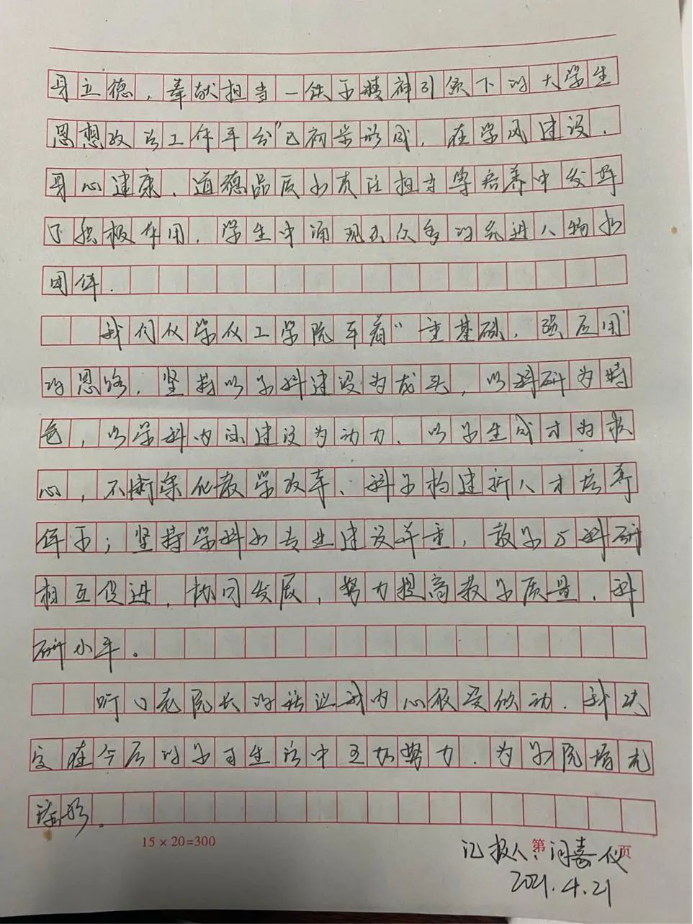 身立德，奉献担当一铁子精神引领下的大学生
思想政治工作平台”已初步形成，在学风建设，
身心健康，道德品质和责任担当等培养中发挥
了积极作用，学生中涌现出众多的先进人物和
团体．
我们化学化工学院本着“重基础，强应用”
的思路，坚持以学科建设为龙头，以科研为特
色，以学科内涵建设为动力，以学生成才为核
心，不断深化教学改革、科学构建新人才培养
体系；坚持学科和专业建设并重，教学与科研
相互促进，协同发展，努力提高教学质量，科
研水平。
听 院长的话 我内心很受 动．我决
定在今后的学习生活中更加努力．为学院增光
添彩．
15×20=300
汇报人：闫 仪
第 页
2021.4.21